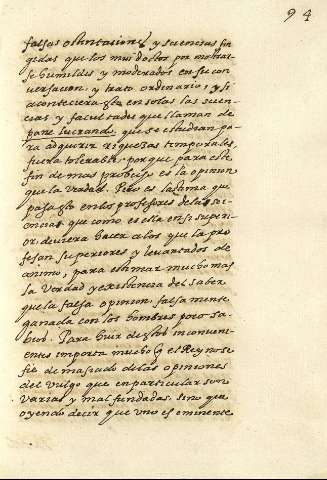 94
falsas ostentaciones y sciencias fin
gidas que los mui doctos por mostrarse
humildes y moderados en su con
versacion, y trato ordinario, y si
aconteciera esto en solas las scien
cias y facultades que llaman de
pane lucrando que se estudian pa
ra adquirir riquezas temporales,
fuera tolerable: porque para este
fin de mas provecho es la opinion
que la verdad. Pero es lastima que
pasa esto en los profesores de las
ciencias que como es ella en si superi
or, deviera hacer a los que la pro
fesan superiores y levantados de
animo, para estimar mucho mas
la verdad y existencia del saber
que la falsa opinion, falsamente
ganada con los hombres poco sa
bios. Para huir de estos inconveni
entes importa mucho q el Rey no se
fie demasiado de las opiniones
del vulgo que en particular son
varias y mal fundadas. sino que
oyendo decir que uno es eminente